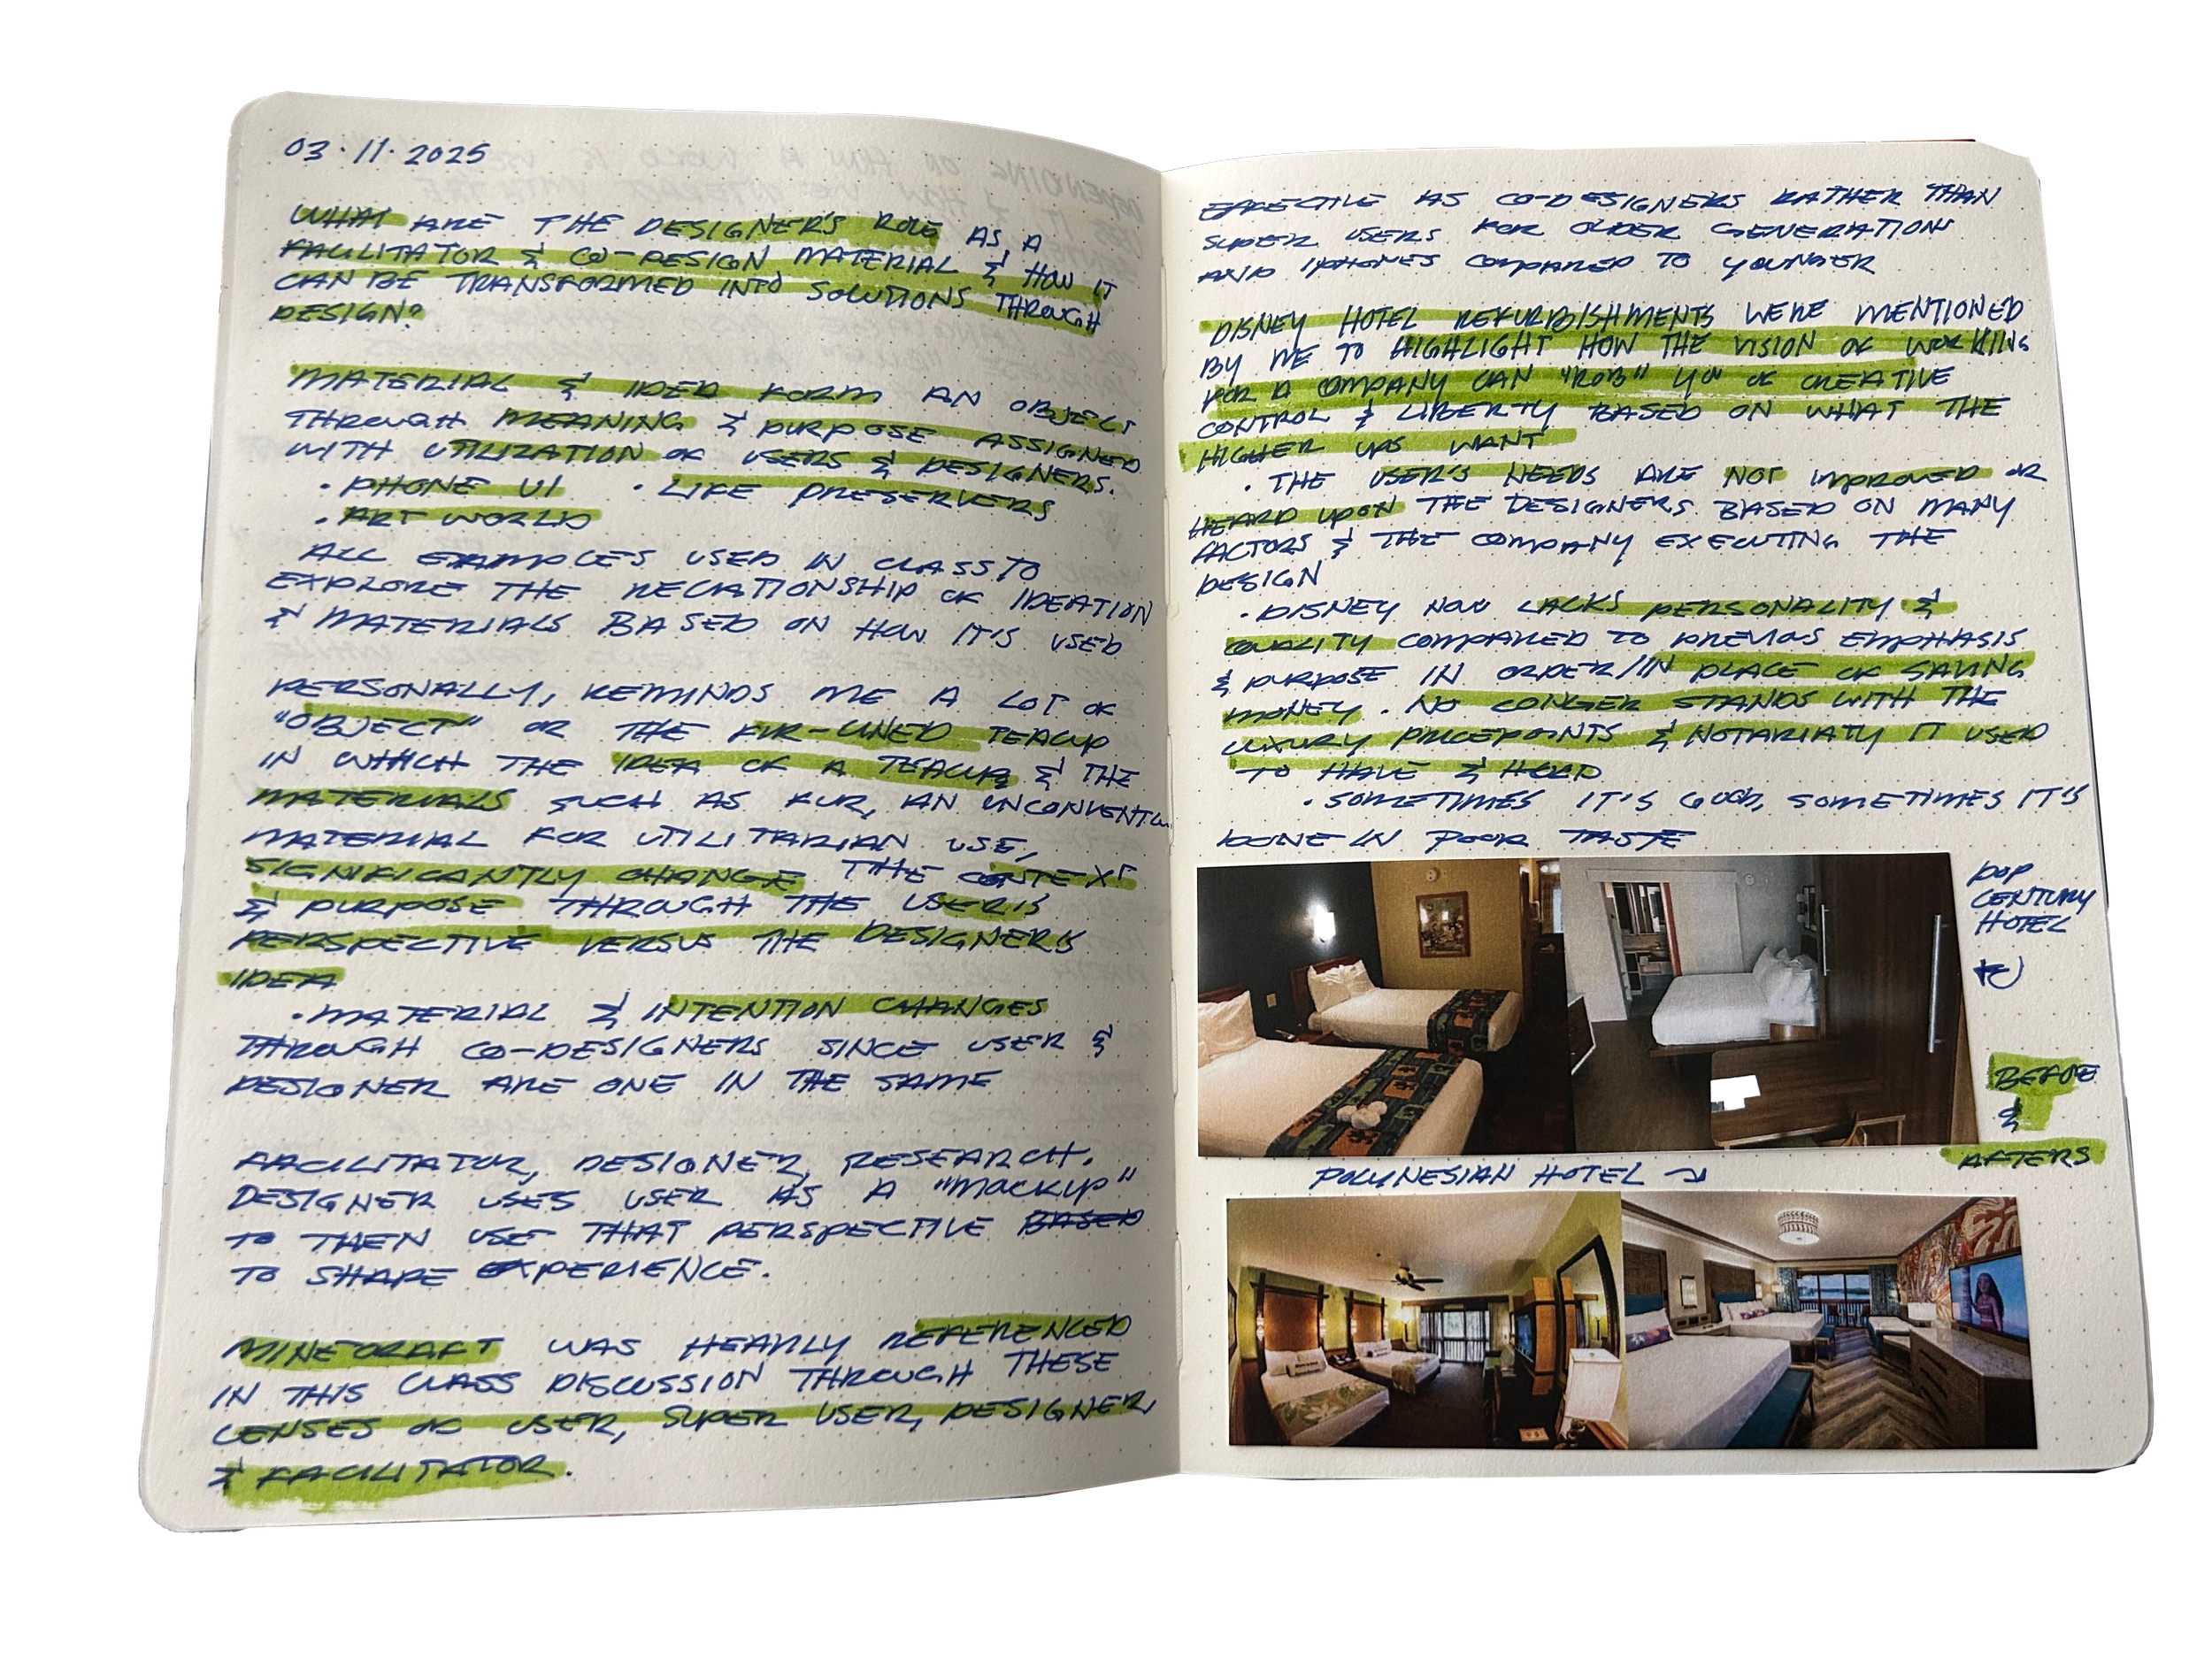 03.11.2025
WHAT ARE THE DESIGNER'S ROLE AS A
FACILITATOR & CO-DESIGN MATERIAL & HOW IT
CAN BE TRANSFORMED INTO SOLUTIONS THROUGH
DESIGN?
MATERIAL & IDEA FORM AN OBJECT
THROUGH MEANING & PURPOSE ASSIGNED
WITH UTILIZATION OF USERS & DESIGNERS.
· PHONE UI · LIFE PRESERVERS
· ART WORLD
ALL EXAMPLES USED IN CLASS TO
EXPLORE THE RELATIONSHIP OF IDEATION
& MATERIALS BASED ON HOW IT'S USED
PERSONALLY, REMINDS ME A LOT OF
"OBJECT" OR THE FUR-LINED TEACUP
IN WHICH THE IDEA OF A TEACUP & THE
MATERIALS SUCH AS FUR, AN
MATERIAL FOR UTILITARIAN USE,
SIGNIFICANTLY CHANGE THE CONTEXT
& PURPOSE THROUGH THE USER'S
PERSPECTIVE VERSUS THE DESIGNER'S
IDEA
· MATERIAL & INTENTION CHANGES
THROUGH CO-DESIGNERS SINCE USER &
DESIGNER ARE ONE IN THE SAME
FACILITATOR, DESIGNER, RESEARCH.
DESIGNER USES USER AS A "MOCKUP"
TO THEN USE THAT PERSPECTIVE BASED
TO SHAPE EXPERIENCE.
MINECRAFT WAS HEAVILY REFERENCED
IN THIS CLASS DISCUSSION THROUGH THESE
LENSES OF USER, SUPER USER, DESIGNER,
& FACILITATOR.
EFFECTIVE AS CO-DESIGNERS RATHER THAN
SUPER USERS FOR OLDER GENERATION
AND IPHONES COMPARED TO YOUNGER
DISNEY HOTEL REFURBISHMENTS WERE MENTIONED
BY ME TO HIGHLIGHT HOW THE VISION OF WORKING
FOR A COMPANY CAN "ROB" YOU OF CREATIVE
CONTROL & LIBERTY BASED ON WHAT THE
HIGHER UPS WANT
· THE USER'S NEEDS ARE NOT IMPROVED OR
HEARD UPON THE DESIGNERS BASED ON MANY
FACTORS & THE COMPANY EXECUTING THE
DESIGN
· DISNEY NOW LACKS PERSONALITY &
QUALITY COMPARED TO PREVIOS EMPHASIS
& PURPOSE IN ORDER/IN PLACE OF SAVING
MONEY. NO LONGER STANDS WITH THE
LUXURY PRICEPOINTS & NOTARIATY IT USED
TO HAVE & HOLD
· SOMETIMES IT'S GOOD, SOMETIMES IT'S
DONE IN POOR TASTE
POP
CENTURY
HOTEL
BEFORE
&
AFTERS
POLYNESIAN HOTEL